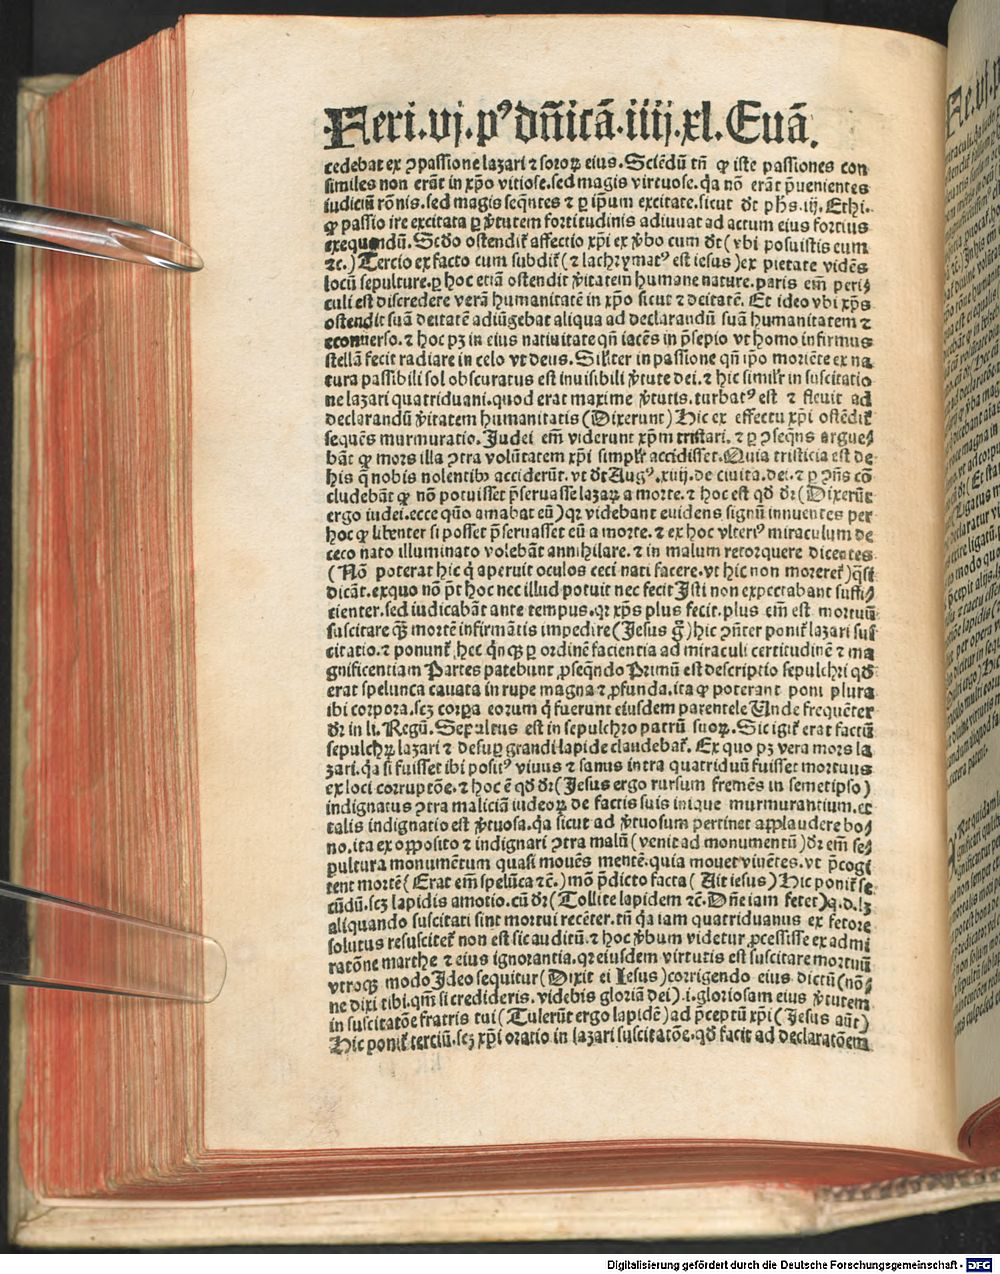 Feri.vj.pꝰ dn̄icā.iiij.xl. Euā.
cedebat ex ↄpassione lazari ⁊ soroꝝ eius. Sciēdū tn̄ ꝙ iste passiones con
similes non erāt in xp̄o vitiose.sed magis virtuose.q̄a nō erāt p̄uenientes
iudiciū rōnis.sed magis seqn̄tes ⁊ ꝑ ip̄um excitate.sicut dt̄ ph̄s.iij.Ethi.
ꝙ passio ire excitata ꝑ v̄tutem fortitudinis adiuuat ad actum eius fortius
exequendū. Scd̄o ostendit᷑ affectio xp̄i ex v̄bo cum dt̄ (vbi posuistis eum
⁊c.) Tercio ex facto cum subdit᷑ (⁊ lachrymatꝰ est iesus) ex pietate vidēs
locū sepulture.ꝑ hoc etiā ostendit v̄itatem humane nature. paris em̄ peri/
culi est discredere verā humanitatē in xp̄o sicut ⁊ deitatē. Et ideo vbi xp̄s
ostendit suā deitatē adiūgebat aliqua ad declarandū suā humanitatem ⁊
econuerso.⁊ hoc pꝫ in eius natiuitate qn̄ iacēs in p̄sepio vt homo infirmus
stellā fecit radiare in celo vt deus. Silꝉter in passione qn̄ ip̄o moriēte ex na
tura passibili sol obscuratus est inuisibili v̄tute dei.⁊ hic simil᷑r in suscitatio
ne lazari quatriduani.quod erat maxime v̄tutis.turbatꝰ est ⁊ fleuit ad
declarandū v̄itatem humanitatis (Dixerunt) Hic ex effectu xp̄i ostēdit᷑
sequēs murmuratio. Judei em̄ viderunt xp̄m tristari.⁊ ꝑ ↄseqn̄s argue/
bāt ꝙ mors illa ↄtra volūtatem xp̄i simpl᷑r accidisset. Quia tristicia est de
his q̄ nobis nolentibꝰ acciderūt.vt dt̄ Augꝰ.xiiij.de ciuita.dei.⁊ ꝑ ↄn̄s cō
cludebāt ꝙ nō potuisset p̄seruasse lazaꝝ a morte.⁊ hoc est qd̄ dr̄ (Dixerūt
ergo iudei.ecce quō amabat eū) qꝛ videbant euidens signū innuentes per
hoc ꝙ libenter si posset p̄seruasset eū a morte.⁊ ex hoc vlteriꝰ miraculum de
ceco nato illuminato volebāt annihilare.⁊ in malum retorquere dicentes
(Nō poterat hic q̄ aperuit oculos ceci nati facere.vt hic non moreret᷑) q̄si
dicāt.exquo nō p̄t hoc nec illud potuit nec fecit Isti non expectabant suffi/
cienter.sed iudicabāt ante tempus.qꝛ xp̄s plus fecit.plus em̄ est mortuū
suscitare qᷓꝫ mortē infirmātis impedire (Jesus gͦ) hic ↄn̄ter ponit᷑ lazari sus
citatio.⁊ ponunt᷑ hec q̄nqꝫ ꝑ ordinē facientia ad miraculi certitudinē ⁊ ma
gnificentiam Partes patebunt ꝓseqn̄do Primū est descriptio sepulchri qd̄
erat spelunca cauata in rupe magna ⁊ ꝓfunda.ita ꝙ poterant poni plura
ibi corpora.scꝫ corꝑa eorum q̄ fuerunt eiusdem parentele Unde frequēter
dr̄ in li. Regū. Sepultus est in sepulchro patrū suoꝝ. Sic igit᷑ erat factū
sepulchꝝ lazari ⁊ desuꝑ grandi lapide claudebat᷑. Ex quo pꝫ vera mors la
zari.q̄a si fuisset ibi positꝰ viuus ⁊ sanus intra quatriduū fuisset mortuus
ex loci corruptōe.⁊ hoc ē qd̄ dr̄ (Jesus ergo rursum fremēs in semetipso)
indignatus ↄtra maliciā iudeoꝝ de factis suis inique murmurantium.et
talis indignatio est v̄tuosa.q̄a sicut ad v̄tuosum pertinet applaudere bo/
no.ita ex opposito ⁊ indignari ↄtra malū (venit ad monumentū) dr̄ em̄ se/
pultura monumētum quasi mouēs mentē.quia mouet viuētes.vt p̄cogi
tent mortē (Erat em̄ spelūca ⁊c̄.) mō p̄dicto facta (Ait iesus) Hic ponit᷑ se
cūdū.scꝫ lapidis amotio.cū dr̄ (Tollite lapidem ⁊c̄. Dn̄e iam fetet) q.d.lꝫ
aliquando suscitati sint mortui recēter.tn̄ q̄a iam quatriduanus ex fetore
solutus resuscitet᷑ non est sic auditū.⁊ hoc v̄bum videtur ꝓcessisse ex admi
ratōne marthe ⁊ eius ignorantia.qꝛ eiusdem virtutis est suscitare mortuū
vtroqꝫ modo Ideo sequitur (Dixit ei Iesus) corrigendo eius dictū (nō/
ne dixi tibi.qm̄ si credideris.videbis gloriā dei).i.gloriosam eius v̄tutem
in suscitatōe fratris tui (Tulerūt ergo lapidē) ad p̄ceptū xp̄i (Jesus aūt)
Hic ponit᷑ terciū.scꝫ xp̄i oratio in lazari suscitatōe.qd̄ facit ad declaratōem
Digitalisierung gefördert durch die Deutsche Forschungsgemeinschaft - DFG